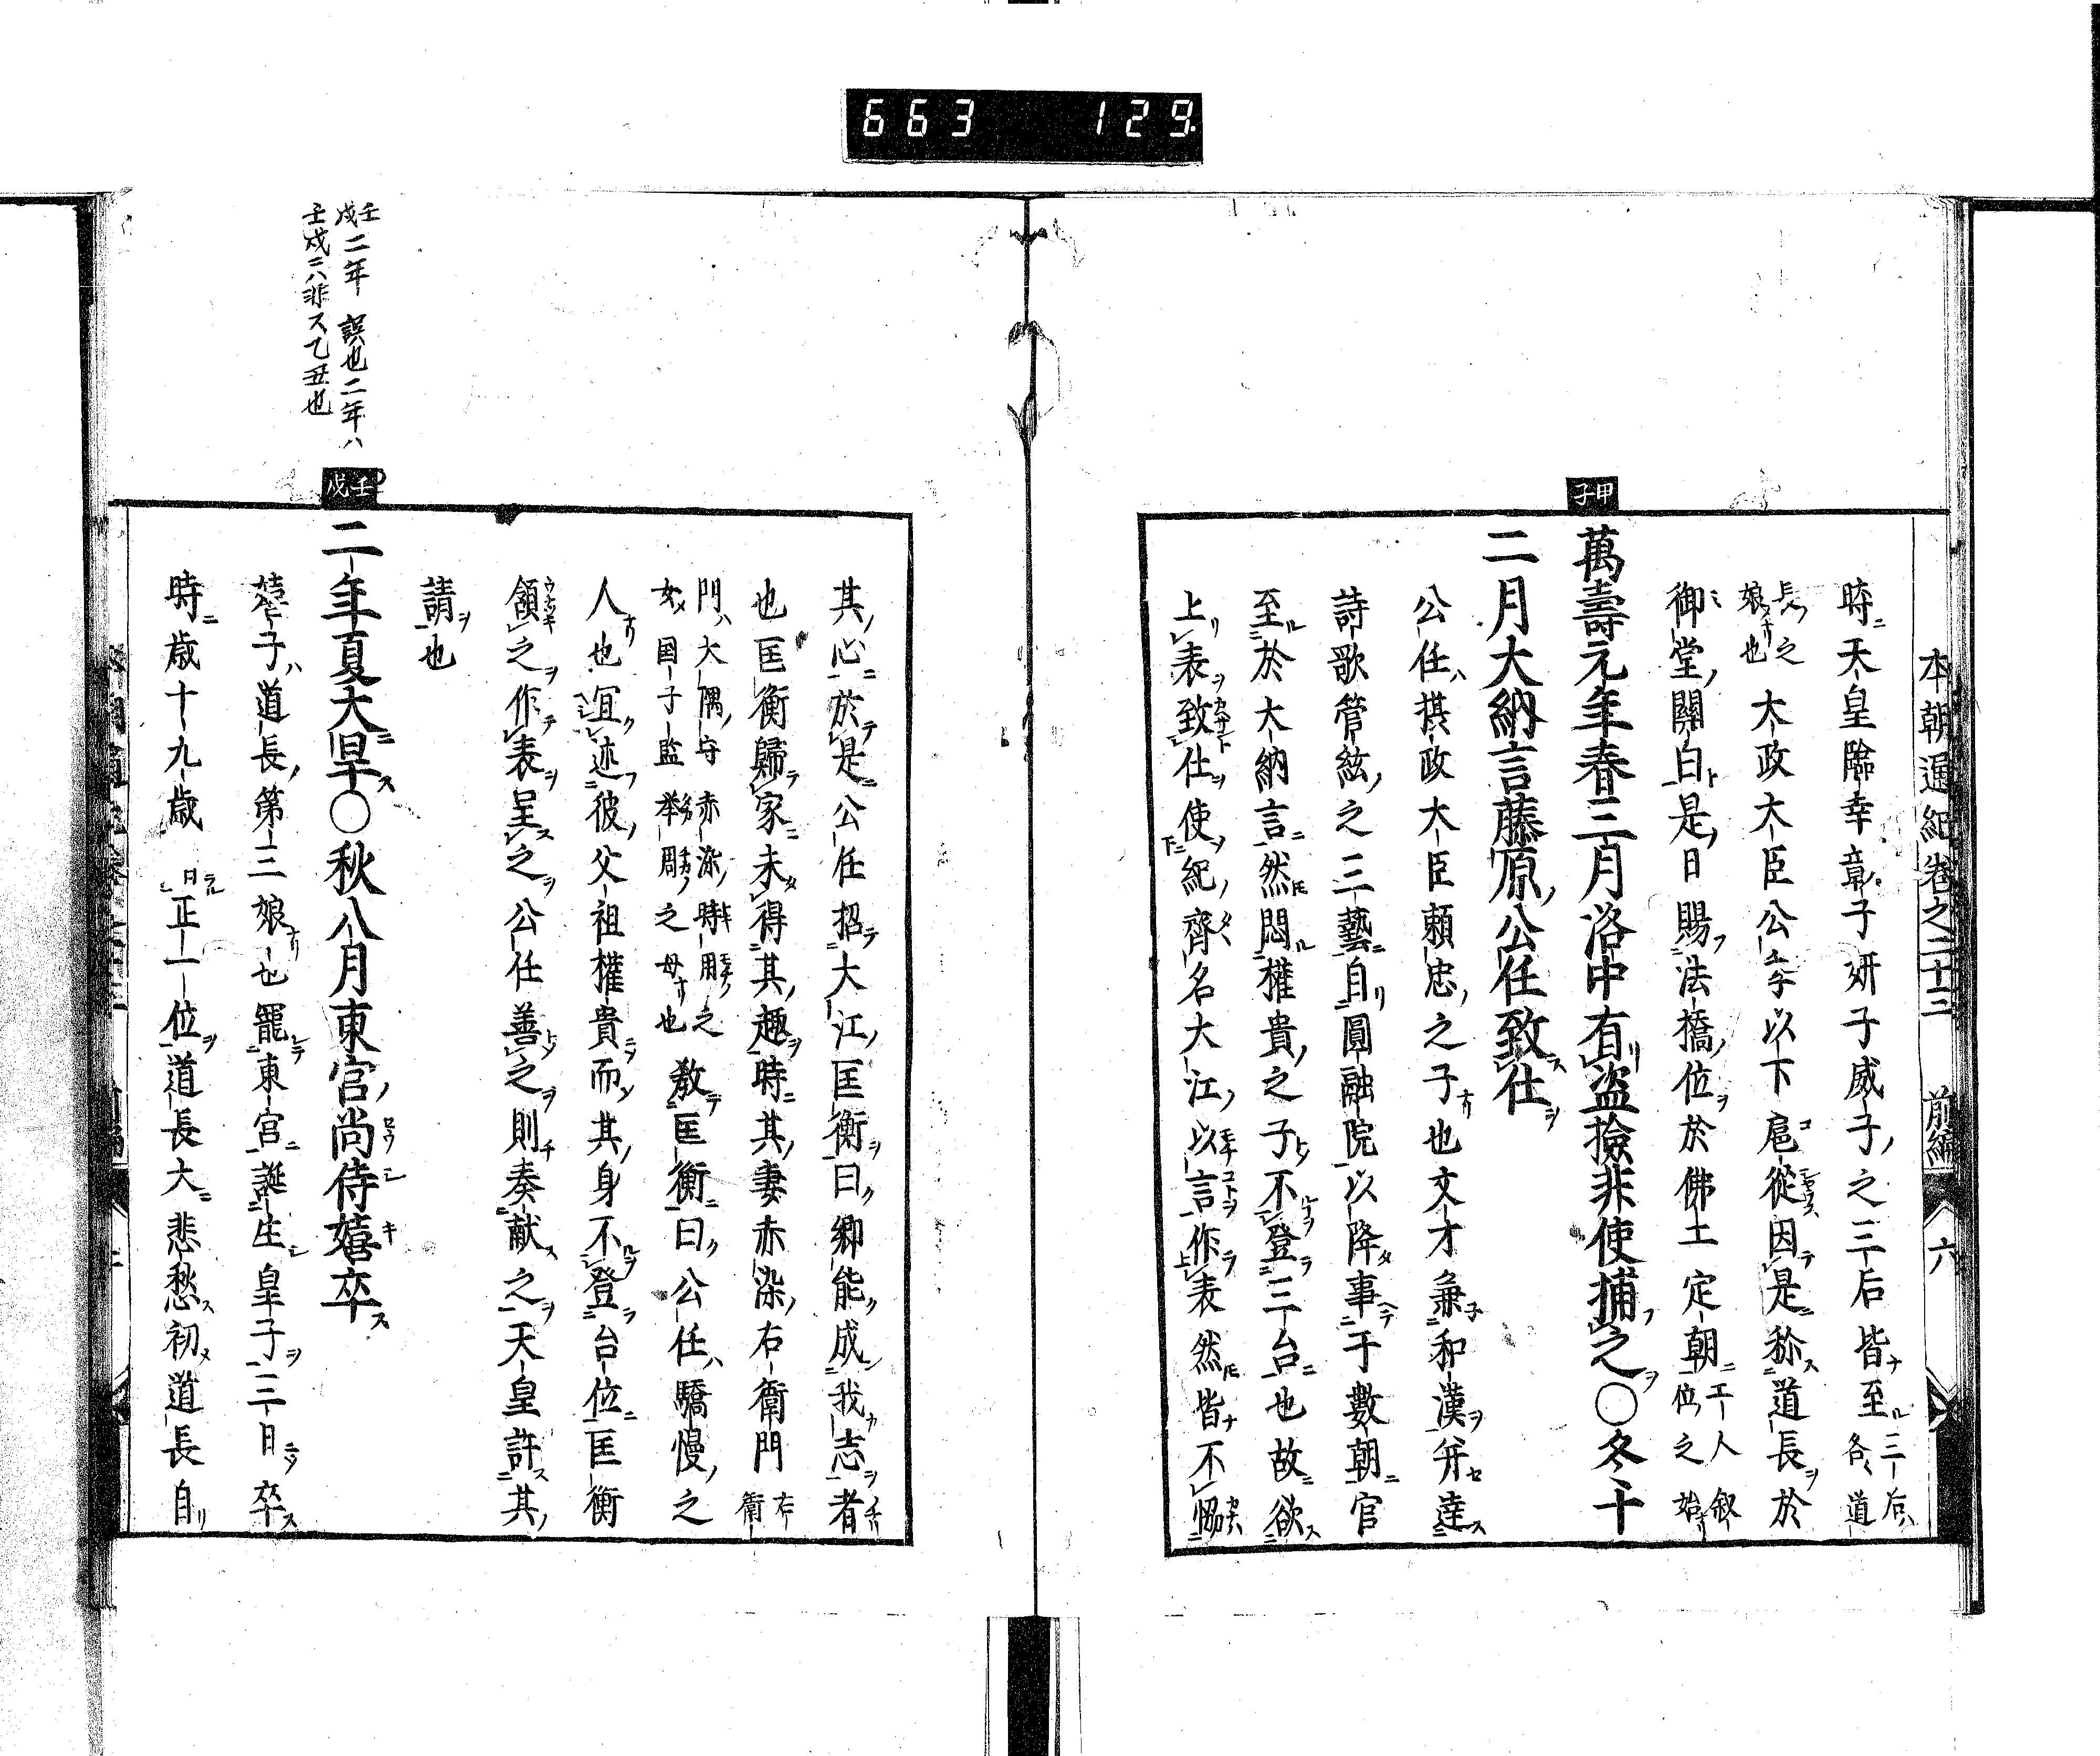 663 129
本朝通紀卷之二十三 前編 六
時天皇臨幸彰子妍子威子之三后皆至三后各道
長之娘也大政大臣公季以下扈從因是稱道長於
御堂關白是日賜法橋位於佛工定朝工人叙位之始
甲子
萬壽元年春三月洛中有盗撿非使捕之○冬十
二月大納言藤原公任致仕
公任摂政大臣頼忠之子也文才兼和漢并達
詩歌管絃之三藝自圓融院以降事于數朝官
至於大納言然悶權貴之子不登三台也故欲
上表致仕使紀齊名大江以言作表然皆不恊
其心於是公任招大江匡衡曰卿能成我志者
也匡衡歸家未得其趣時其妻赤染右衛門右衛
門大隅守赤染時用之女国子監挙周之母也教匡衡曰公任驕慢之
人也宜述彼父祖權貴而其身不登台位匡衡
領之作表呈之公任善之則奏献之天皇許其
請也
壬戌二年誤也二年ハ
壬戌ニハ非ス乙丑也
壬戌
二年夏大旱○秋八月東宮尚侍嬉卒
嬉子道長第三娘也寵東宮誕生皇子三日卒
時歳十九歳曰正一位道長大悲愁初道長自